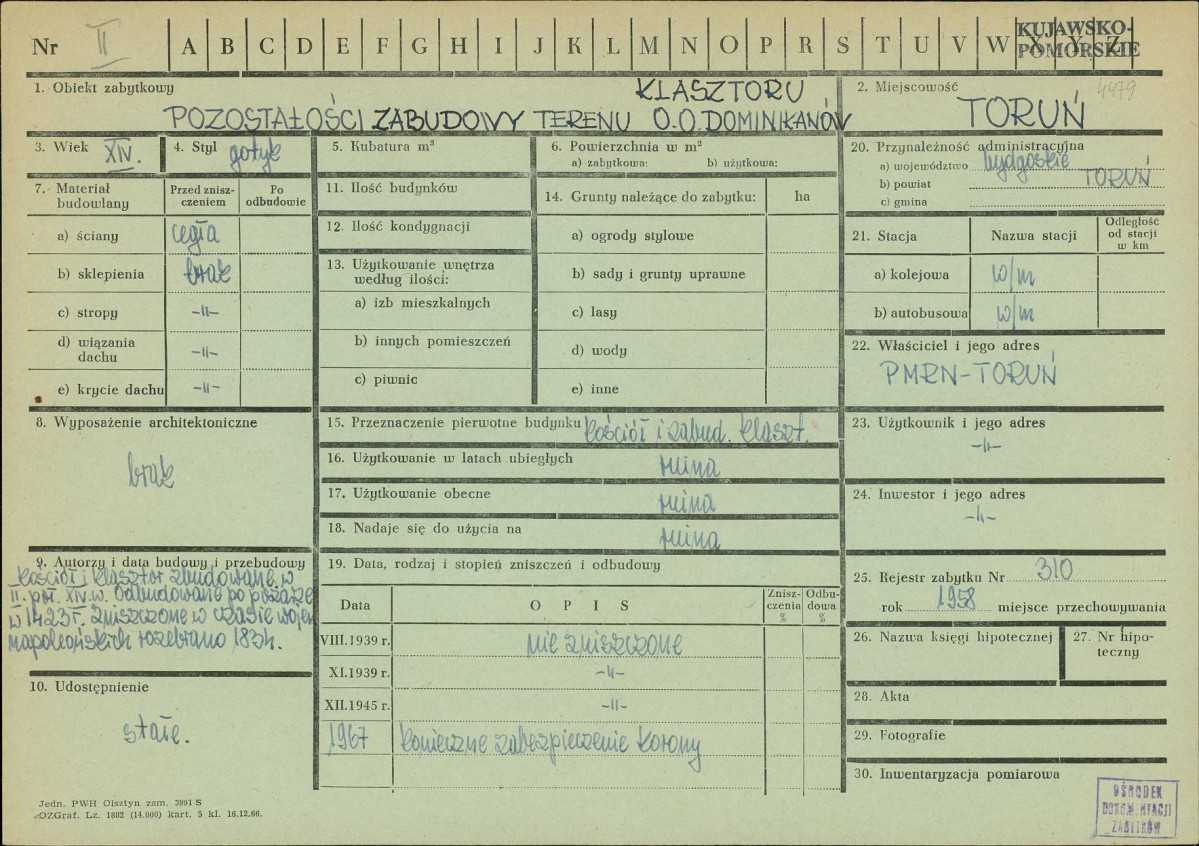 Nr II A B C D E F G H I J K L M N O P R S T U V W X Y Z
KUJAWSKO-
POMORSKIE
1. Obiekt zabytkowy
KLASZTORU
POZOSTAŁOŚCI ZABUDOWY TERENU O.O. DOMINIKANÓW
2. Miejscowość
4479
TORUŃ
3. Wiek XIV.
4. Styl gotyk
5. Kubatura m³
6. Powierzchnia w m²
a) zabytkowa: b) użytkowa:
20. Przynależność administracyjna
a) województwo bydgoskie
b) powiat TORUŃ
c) gmina
7. Materiał
budowlany
Przed znisz-
czeniem
Po
odbudowie
a) ściany cegła
b) sklepienia brak
c) stropy -„-
d) wiązania
dachu -„-
e) krycie dachu -„-
11. Ilość budynków
12. Ilość kondygnacji
13. Użytkowanie wnętrza
według ilości:
a) izb mieszkalnych
b) innych pomieszczeń
c) piwnic
14. Grunty należące do zabytku: ha
a) ogrody stylowe
b) sady i grunty uprawne
c) lasy
d) wody
e) inne
21. Stacja Nazwa stacji
Odległość
od stacji
w km
a) kolejowa w/m
b) autobusowa w/m
22. Właściciel i jego adres
PMRN-TORUŃ
8. Wyposażenie architektoniczne
brak
15. Przeznaczenie pierwotne budynku kościół i zabud. klaszt.
16. Użytkowanie w latach ubiegłych ruina
17. Użytkowanie obecne ruina
18. Nadaje się do użycia na ruina
23. Użytkownik i jego adres
-„-
24. Inwestor i jego adres
-„-
9. Autorzy i data budowy i przebudowy
Kościół i klasztor zbudowane w
II. poł. XIV. w. Odbudowane po pożarze
w 1423 r. Zniszczone w czasie wojen
napoleońskich rozebrano 1834.
10. Udostępnienie
stałe.
19. Data, rodzaj i stopień zniszczeń i odbudowy
Data OPIS
Znisz-
czenia
%
Odbu-
dowa
%
VIII.1939 r. nie zniszczone
XI.1939 r. -„-
XII.1945 r. -„-
1967 konieczne zabezpieczenie korony
25. Rejestr zabytku Nr 310
rok 1958 miejsce przechowywania
26. Nazwa księgi hipotecznej
27. Nr hipo-
teczny
28. Akta
29. Fotografie
30. Inwentaryzacja pomiarowa
Jedn. PWH Olsztyn zam. 3991 S
OZGraf. Lz. 1882 (14.000) kart. 5 kl. 16.12.66.
OŚRODEK
DOKUMENTACJI
ZABYTKÓW